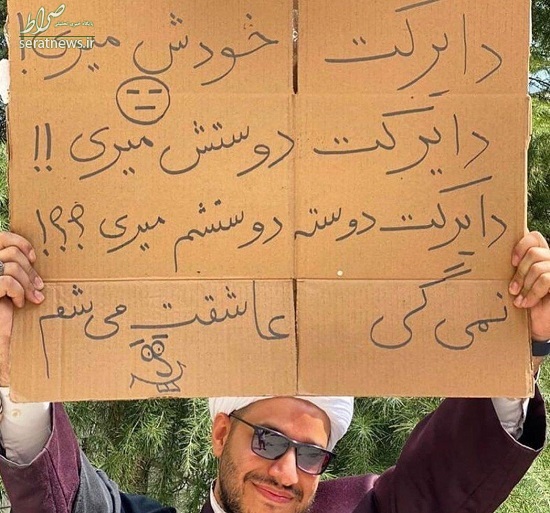 صراط
پایگاه خبری تحلیلی
seratnews.ir
دایرکت خودش میری!
دایرکت دوستش میری !!
دایرکت دوسته دوستشم میری ؟؟؟!
نمی گی عاشقت می شم